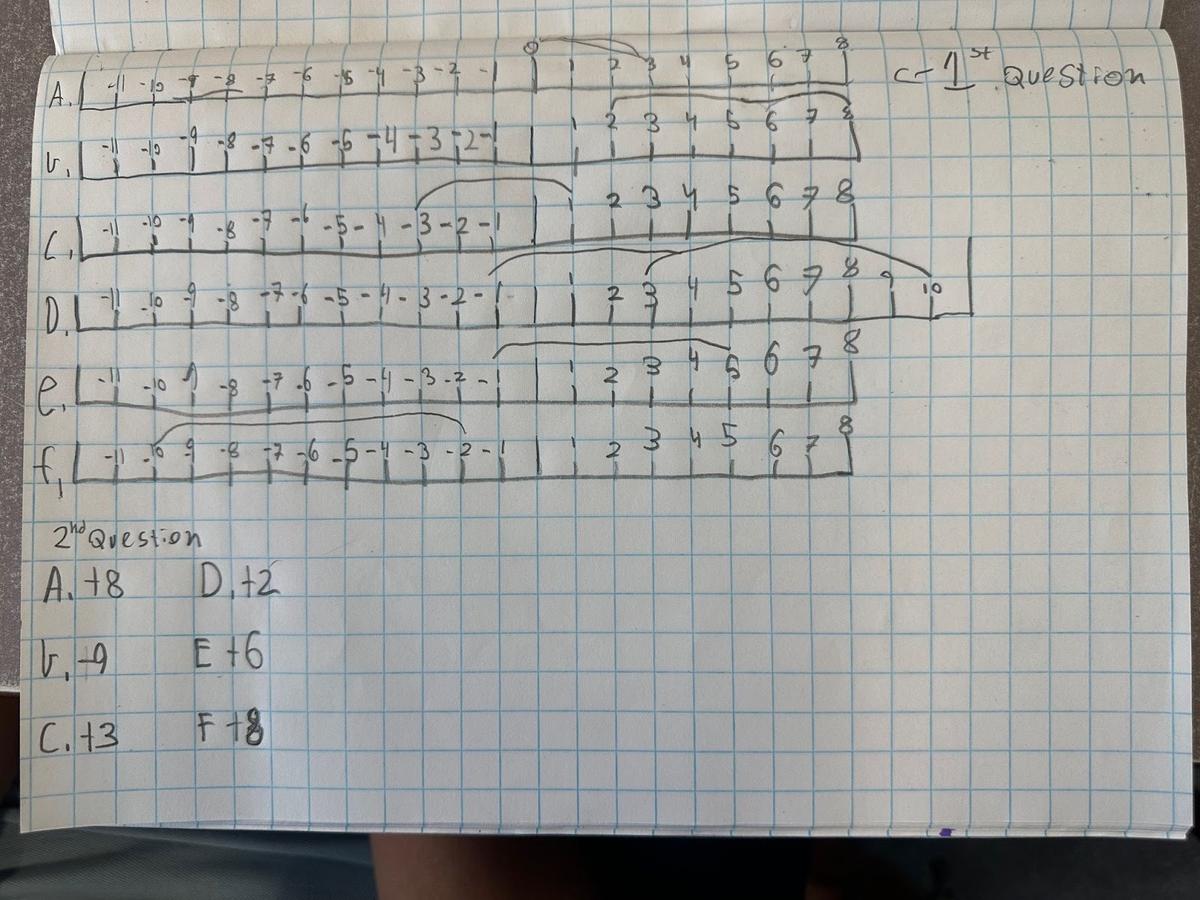 A. -11 -10 -9 -8 -7 -6 -5 -4 -3 -2 -1 0 1 2 3 4 5 6 7 8 <- 1st Question
b. -11 -10 -9 -8 -7 -6 -5 -4 -3 -2 -1 1 2 3 4 5 6 7 8
C. -11 -10 -9 -8 -7 -6 -5 -4 -3 -2 -1 2 3 4 5 6 7 8
D. -11 -10 -9 -8 -7 -6 -5 -4 -3 -2 -1 1 2 3 4 5 6 7 8 9 10
e. -11 -10 -8 -7 -6 -5 -4 -3 -2 -1 1 2 3 4 5 6 7 8
f. -11 -10 -9 -8 -7 -6 -5 -4 -3 -2 -1 1 2 3 4 5 6 7 8
2nd Question
A. +8 D. +2
b. -9 E +6
C. +3 F +8